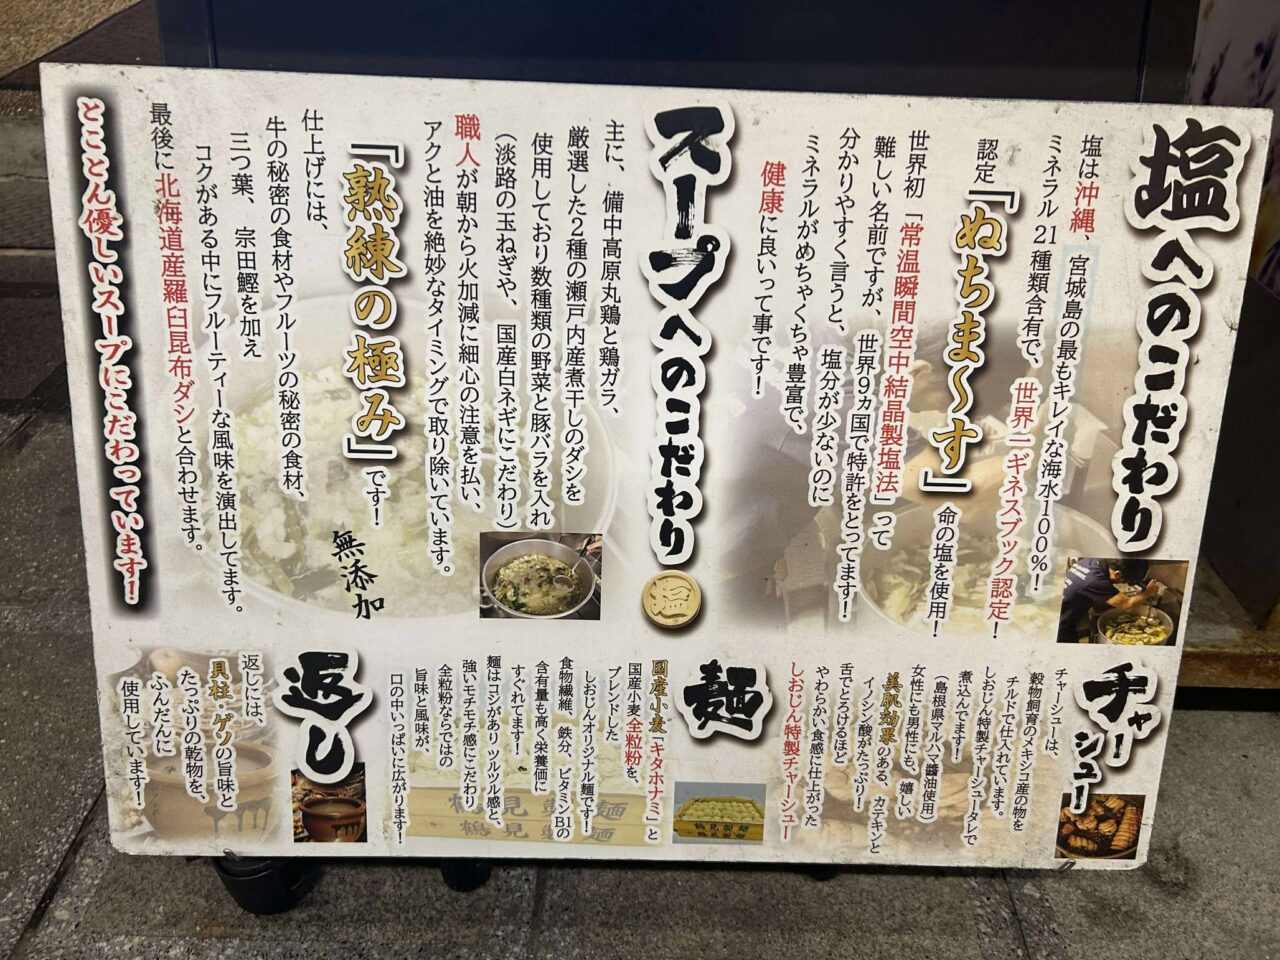 塩へのこだわり
塩は沖縄、宮城島の最もキレイな海水100%!
ミネラル21種類含有で、世界一ギネスブック認定!
認定『ぬちまーす』命の塩を使用!
世界初「常温瞬間空中結晶製塩法」って
難しい名前ですが、世界9ヵ国で特許をとってます!
分かりやすく言うと、塩分が少ないのに
ミネラルがめちゃくちゃ豊富で、
健康に良いって事です!
スープへのこだわり
塩
主に、備中高原丸鶏と鶏ガラ、
厳選した2種の瀬戸内産煮干しのダシを
使用しており数種類の野菜と豚バラを入れ
(淡路の玉ねぎや、国産白ネギにこだわり)
職人が朝から火加減に細心の注意を払い、
アクと油を絶妙なタイミングで取り除いています。
『熟練の極み』です!
無添加
仕上げには、
牛の秘密の食材やフルーツの秘密の食材、
三つ葉、宗田鰹を加え
コクがある中にフルーティーな風味を演出してます。
最後に北海道産羅臼昆布ダシと合わせます。
とことん優しいスープにこだわっています!
チャーシュー
チャーシューは、
穀物飼育のメキシコ産の物を
チルドで仕入れています。
しおじん特製チャーシュータレで
煮込んでます!
(島根県マルハマ醤油使用)
女性にも男性にも、嬉しい
美肌効果のある、カテキンと
イノシン酸がたっぷり!
舌でとろけるほど
やわらかい食感に仕上がった
しおじん特製チャーシュー
麺
国産小麦「キタホナミ」と
国産小麦全粒粉を、
ブレンドした
しおじんオリジナル麺です!
食物繊維、鉄分、ビタミンB1の
含有量も高く栄養価に
すぐれてます!
麺はコシがありツルツル感と、
強いモチモチ感にこだわり
全粒粉ならではの
旨味と風味が、
口の中いっぱいに広がります!
鶴見製麺
鶴見製麺
鶴見製麺
返し
返しには、
貝柱・ゲソの旨味と
たっぷりの乾物を、
ふんだんに
使用しています!